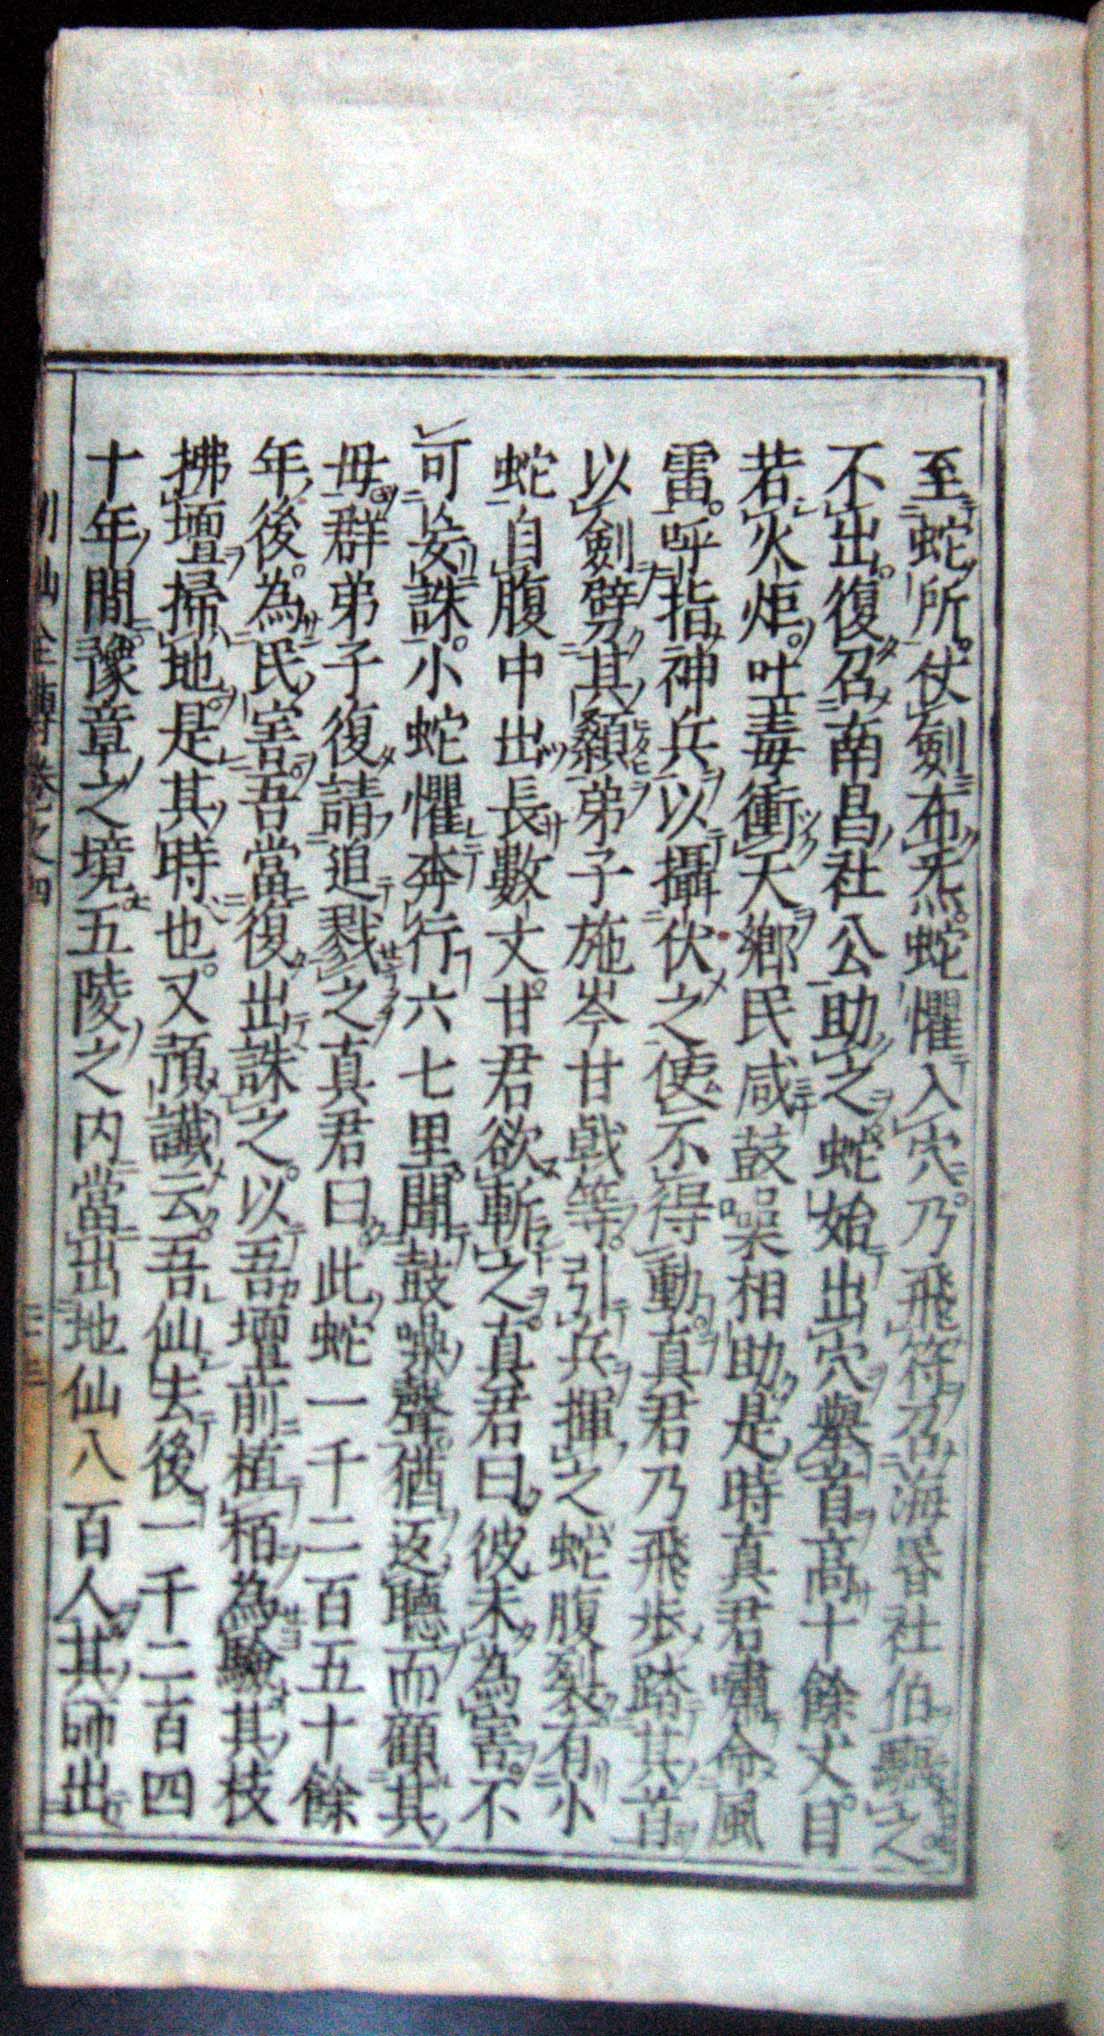 至蛇所。仗劍布炁。蛇懼入穴。乃飛符召海昏社伯驅之
不出。復召南昌社公助之蛇始出穴舉首高十餘丈。目
若火炬。吐毒衝天鄉民咸鼓噪相助是時真君嘯命風
雷。呼指神兵以攝伏之使不得動。真君乃飛步踏其首
以劍劈其顙弟子施岑甘戟等。引兵揮之蛇腹裂有小
蛇自腹中出長數丈。甘君欲斬之。真君曰彼未為害。不
可妄誅。小蛇懼奔行六七里。聞鼓噪聲。猶返聽而顧其
母。群弟子復請追戮之真君曰此蛇一千二百五十餘
年後。為民害。吾當復出誅之。以吾壇前植栢為驗其枝
拂壇掃地。是其時也。又預讖云。吾仙去後一千二百四
十年間。豫章之境五陵之内當出地仙八百人其師出
列仙全傳卷之四
二十三